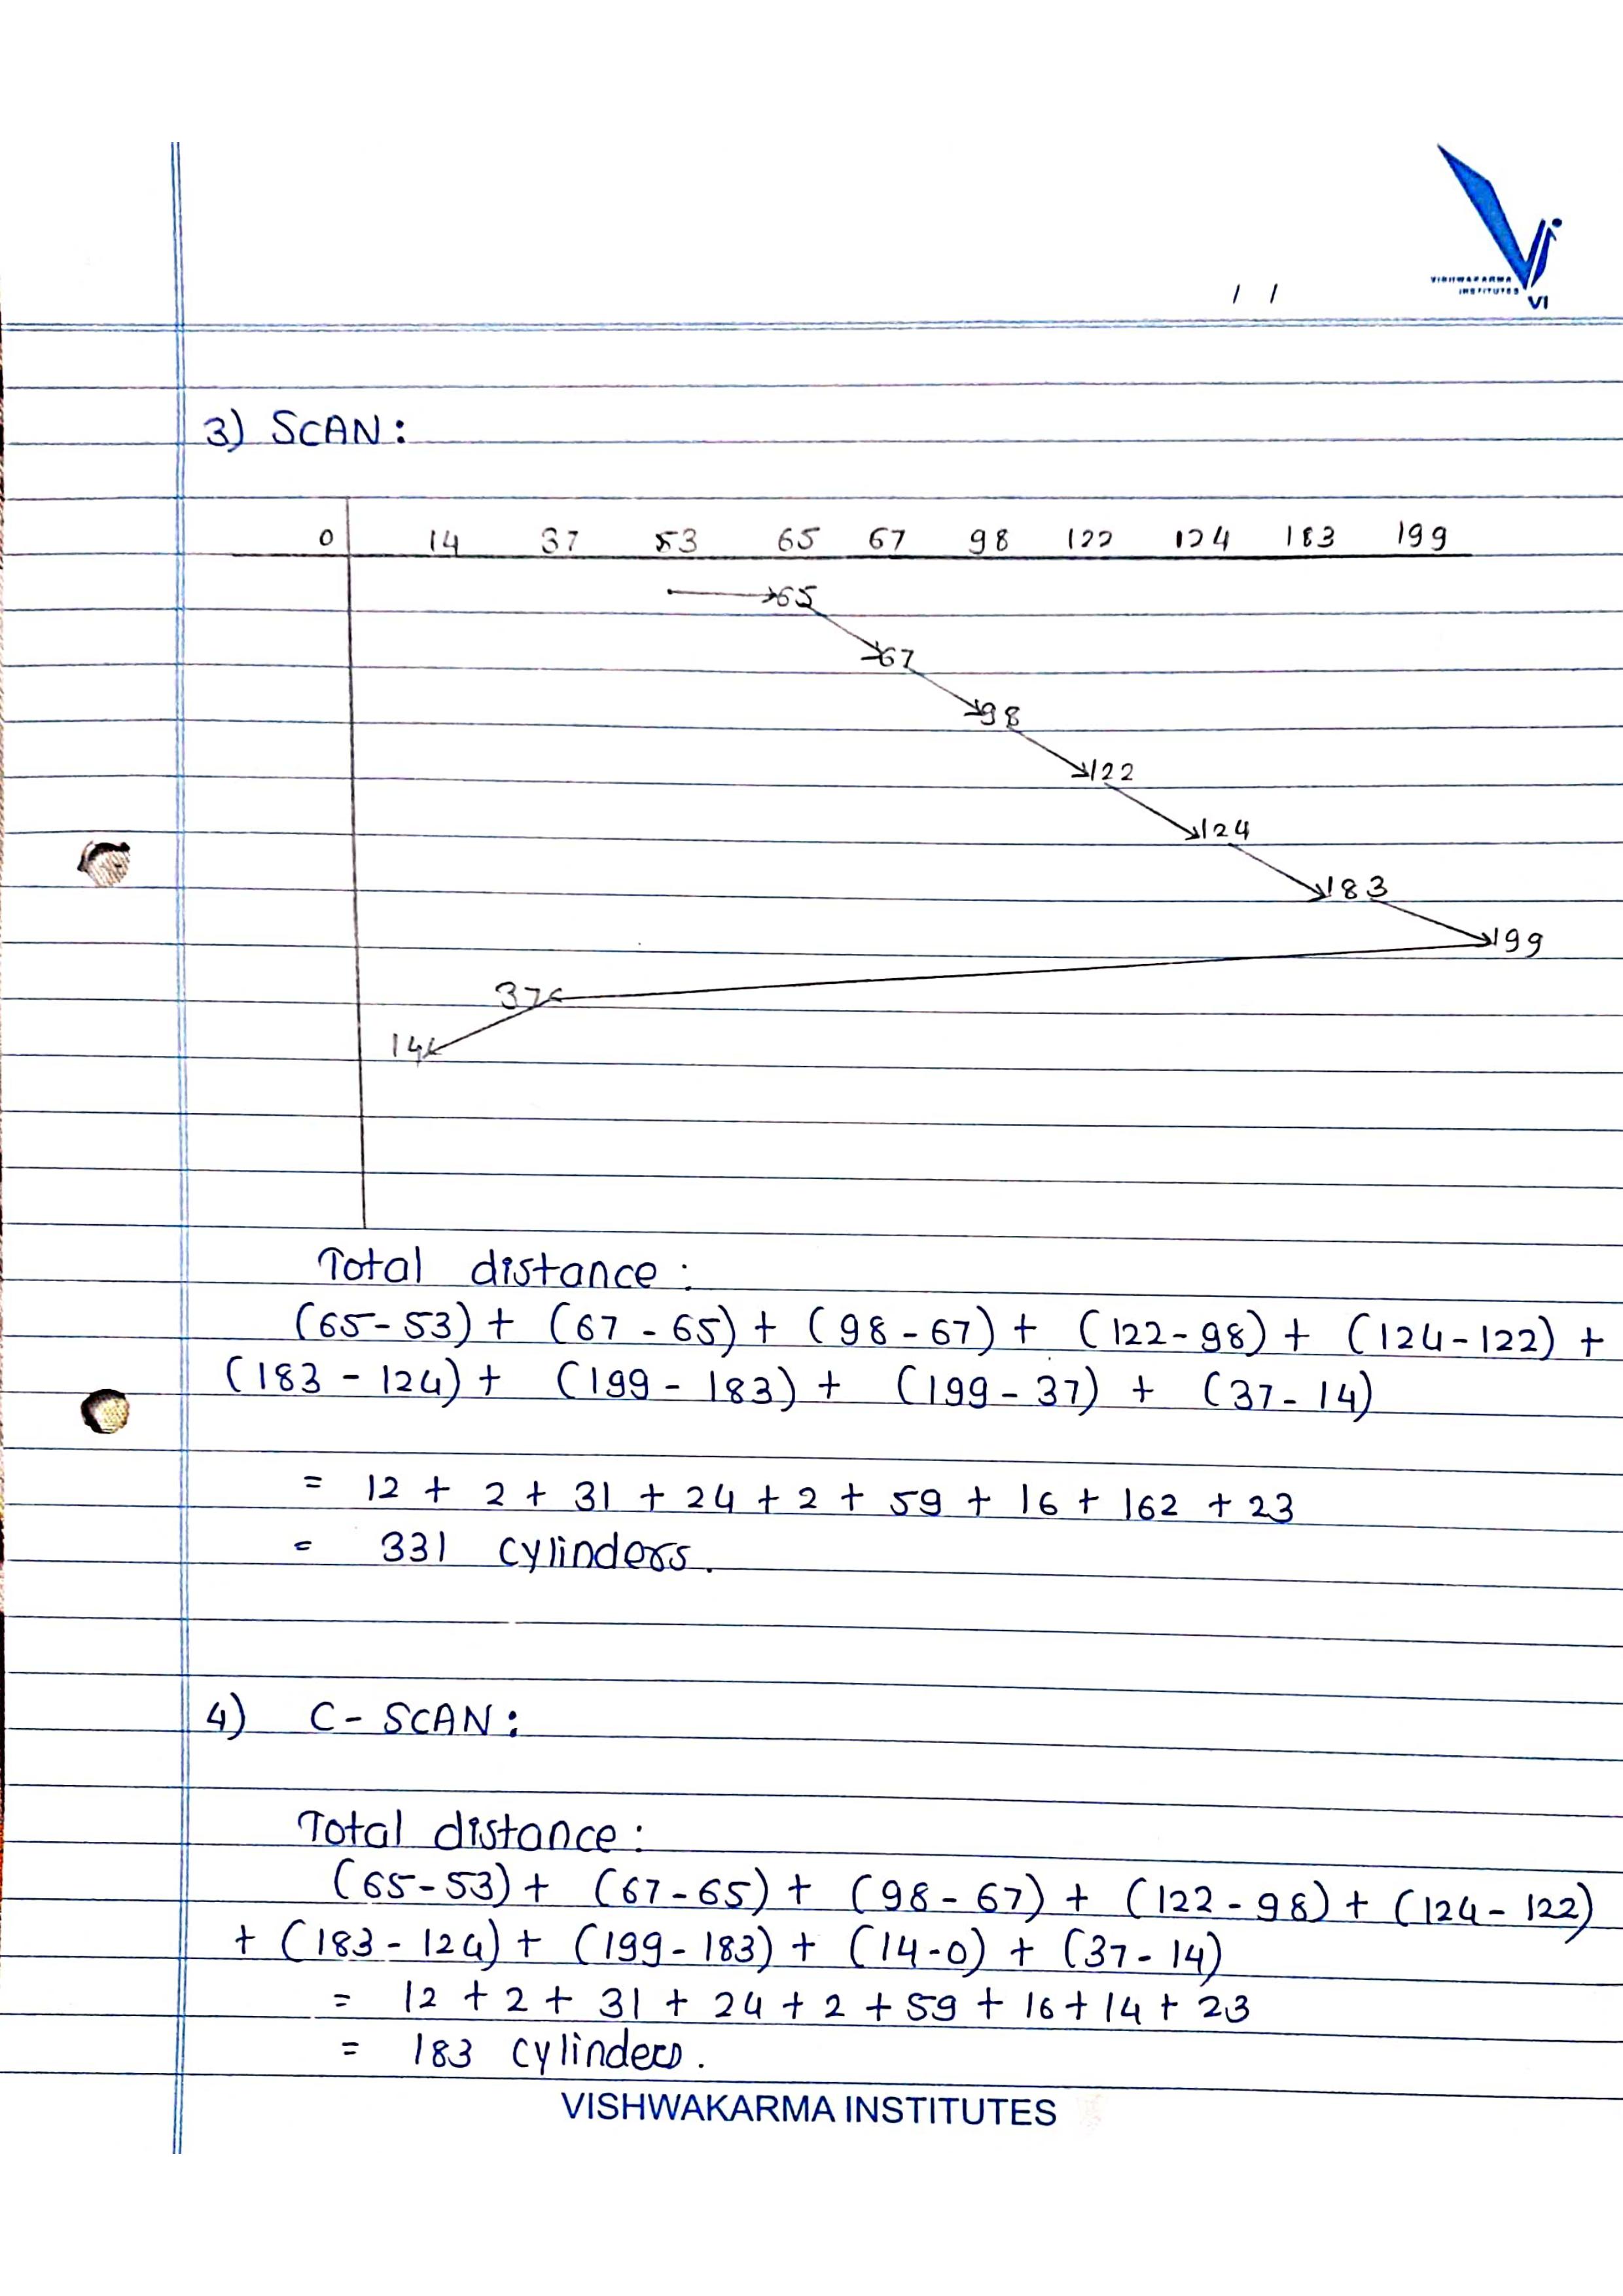 VISHWAKARMA
INSTITUTES VI
/ /
3) SCAN:
0 14 37 53 65 67 98 122 124 183 199
65
67
98
122
124
183
199
37
14
Total distance:
(65-53) + (67-65) + (98-67) + (122-98) + (124-122) +
(183-124) + (199-183) + (199-37) + (37-14)
= 12 + 2 + 31 + 24 + 2 + 59 + 16 + 162 + 23
= 331 cylinders.
4) C-SCAN:
Total distance:
(65-53) + (67-65) + (98-67) + (122-98) + (124-122)
+ (183-124) + (199-183) + (14-0) + (37-14)
= 12 + 2 + 31 + 24 + 2 + 59 + 16 + 14 + 23
= 183 cylinders.
VISHWAKARMA INSTITUTES